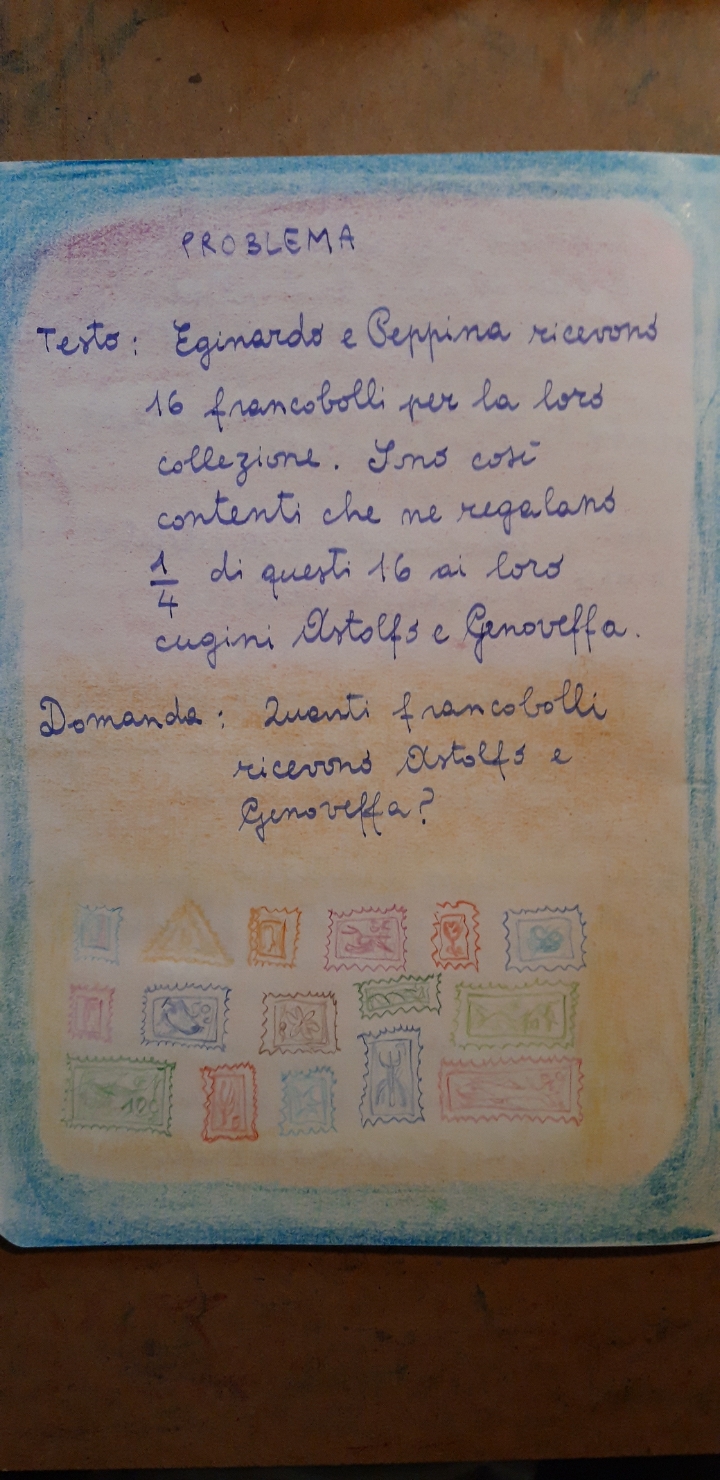 PROBLEMA
Testo: Eginardo e Peppina ricevono
16 francobolli per la loro
collezione. Sono così
contenti che ne regalano
1/4 di questi 16 ai loro
cugini Astolfo e Genoveffa.
Domanda: Quanti francobolli
ricevono Astolfo e
Genoveffa?
100